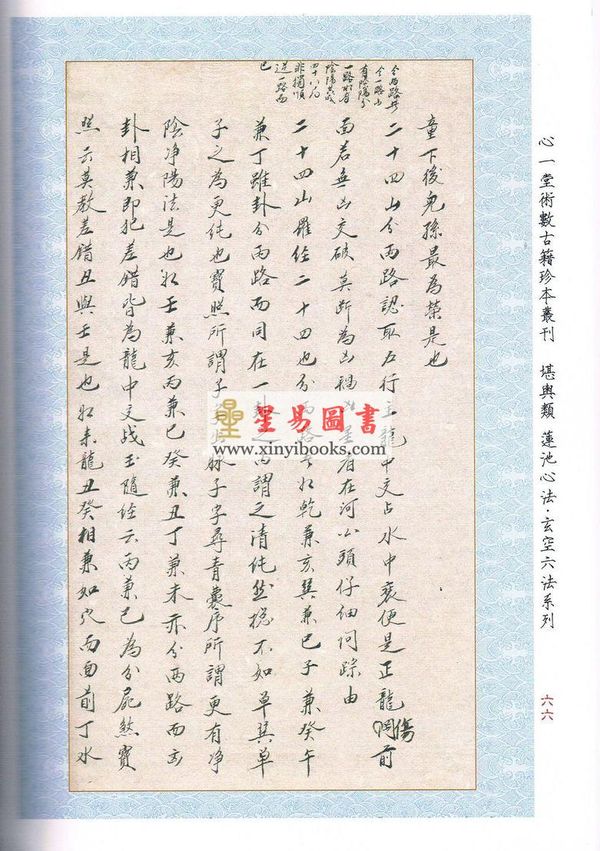 心一堂術數古籍珍本叢刊 堪輿類 蓮池心法·玄空六法系列
六六
有陰陽分
一路水有
陰陽共成
四十八局
非獨順
逆一路而
已
童下後兒孫最為榮是也
二十四山分兩路認取五行主龍中交占水中裝便是正龍傷前
面若無凶交破莫斷為凶禍凶星看在河公頭仔細踪由
二十四山羅经二十四也分兩路者如乾兼亥巽兼巳子兼癸午
兼丁雖卦分兩路而同在一卦之内謂之清純然總不如單巽單
子之為更純也寶照所謂子脉子字尋青囊序所謂更有净
陰净陽法是也如壬兼亥丙兼巳癸兼丑丁兼未亦分兩路而出
卦相兼即犯差錯皆為龍中交战玉隨经云丙兼巳為分屍煞寶
照云莫教差錯丑與壬是也如未龍丑癸相兼如穴而面前丁水
星易圖書
www.xinyibooks.com